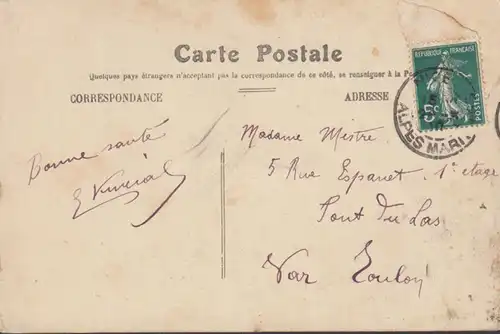 Carte Postale
Quelques pays étrangers n'acceptant pas la correspondance de ce côté, se renseigner à la
CORRESPONDANCE
ADRESSE
REPUBLIQUE FRANÇAISE
5c
POSTES
ALPES MARIT
Bonne santé
Madame Mistre
5 Rue Espanet 1e etage
Pont du Las
Var Toulon